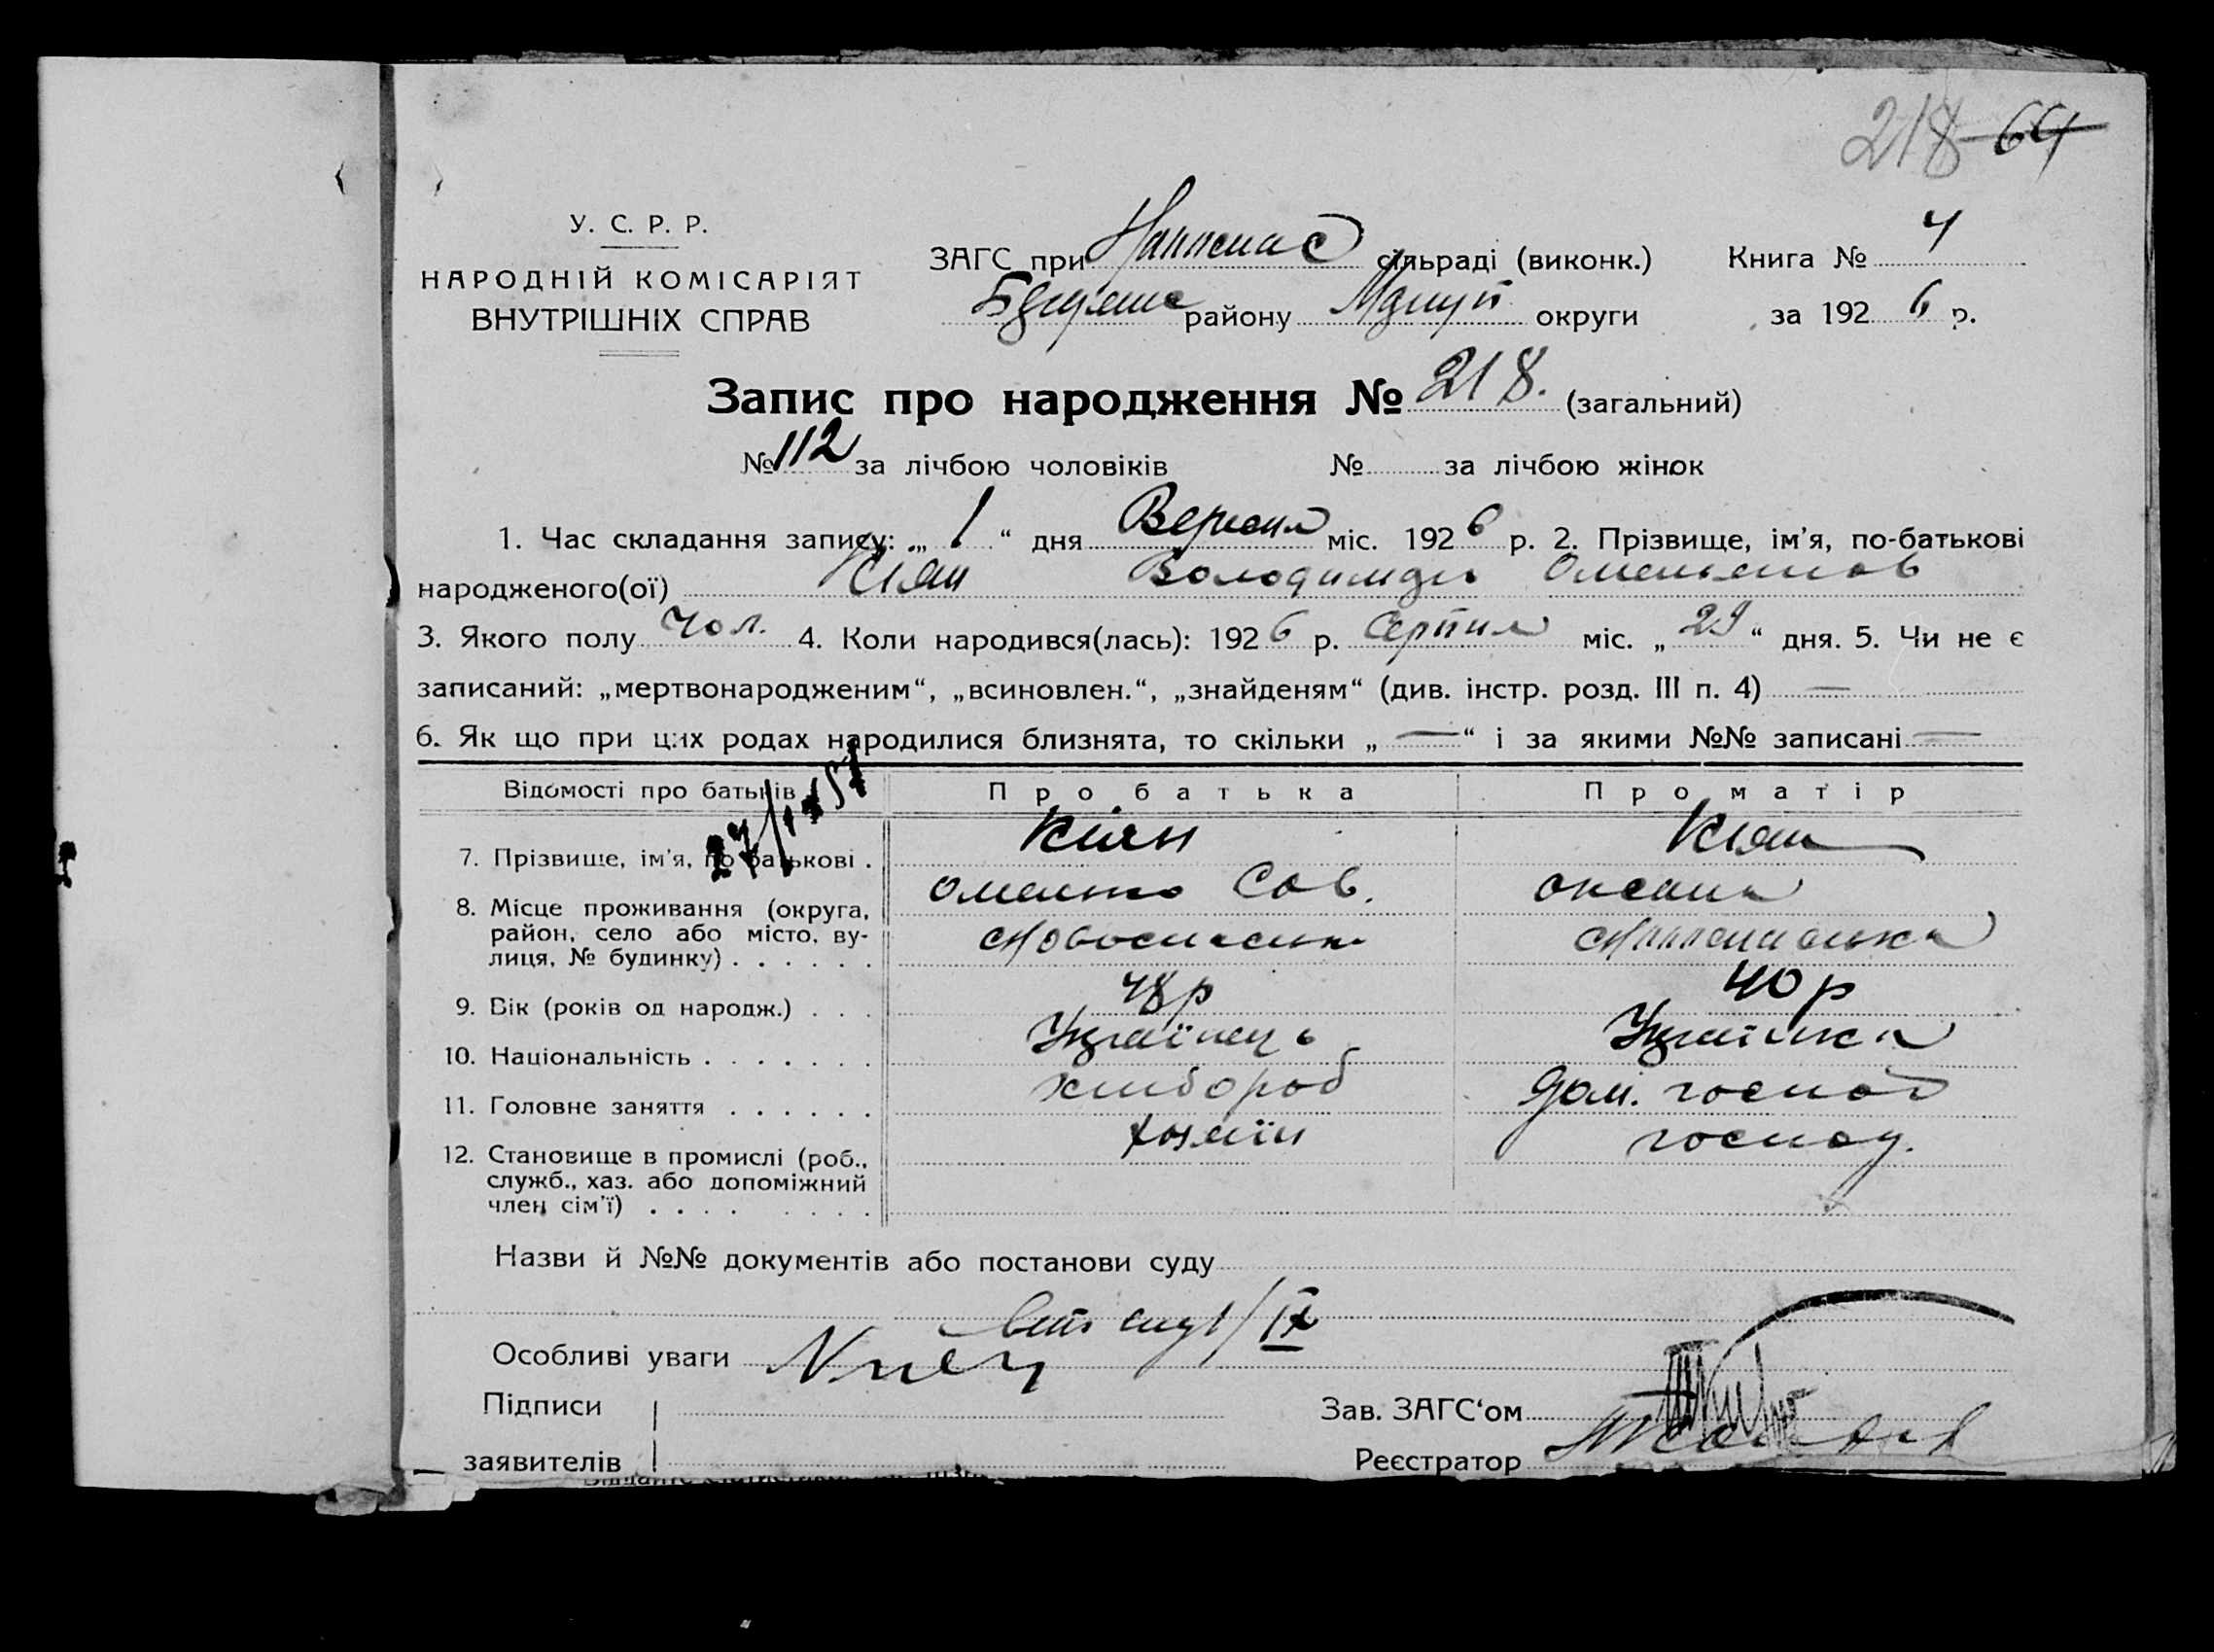 218 64
У. С. Р. Р.
НАРОДНІЙ КОМІСАРІЯТ
ВНУТРІШНІХ СПРАВ
ЗАГС при сільраді (виконк.) Книга № 4
району округи за 1926 р.
Запис про народження № 218. (загальний)
№ 112 за лічбою чоловіків № за лічбою жінок
1. Час складання запису: „ 1 “ дня Вересня міс. 1926 р. 2. Прізвище, ім’я, по-батькові
народженого(ої) Кіян Володимир
3. Якого полу Чол. 4. Коли народився(лась): 1926 р. Серпня міс. „ 29 “ дня. 5. Чи не є
записаний: „мертвонародженим“, „всиновлен.“, „знайденям“ (див. інстр. розд. III п. 4) —
6. Як що при цих родах народилися близнята, то скільки „ — “ і за якими №№ записані —
Відомості про батьків Про батька Про матір
7. Прізвище, ім’я, по батькові . Кіян Кіян
8. Місце проживання (округа, Сав. Оксана
район, село або місто, ву-
лиця, № будинку) . . . . . .
9. Вік (років од народж.) . . . 48 р 40 р
10. Національність . . . . . . . Українець Українка
11. Головне заняття . . . . . . хлибороб Дом. господ
12. Становище в промислі (роб., хазяїн господ.
служб., хаз. або допоміжний
член сім’ї) . . . . . . . .
Назви й №№ документів або постанови суду
1/IX
Особливі уваги
Підписи Зав. ЗАГС‘ом
заявителів Реєстратор